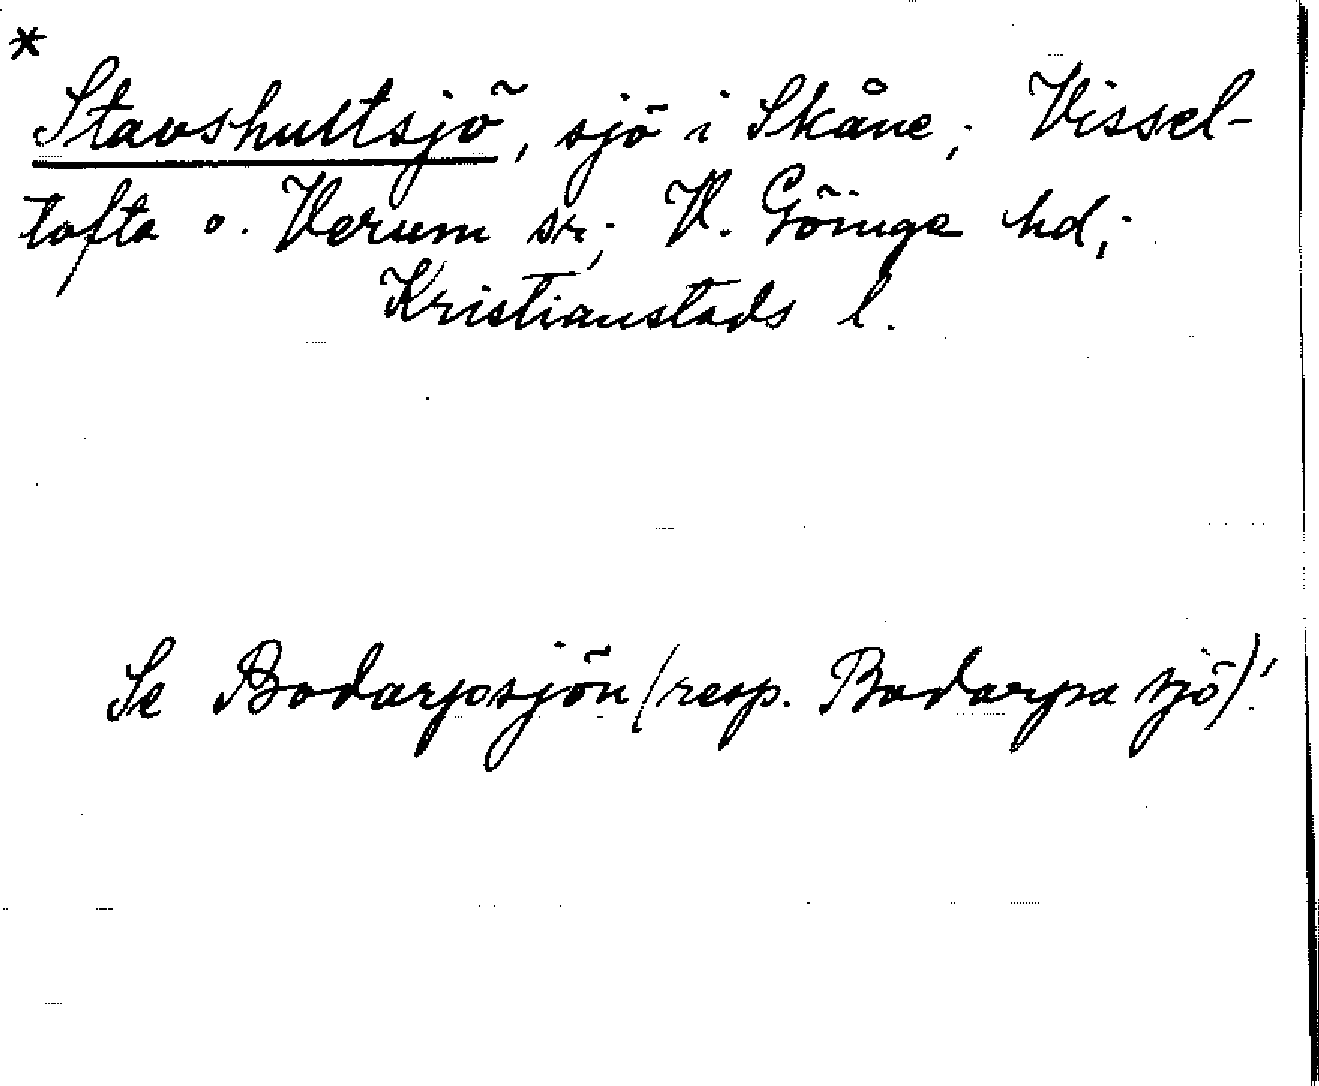 *
Stavshultsjö, sjö i Skåne; Vissel-
tofta o. Verum sr; V. Göinge hd;
Kristianstads l.
Se Bodarpsjön (resp. Bodarpa sjö)!